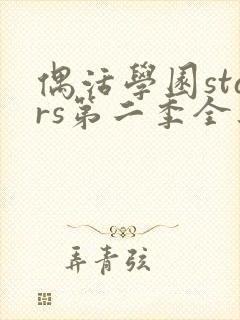 偶活學園sta
rs第二季全
弄青弦